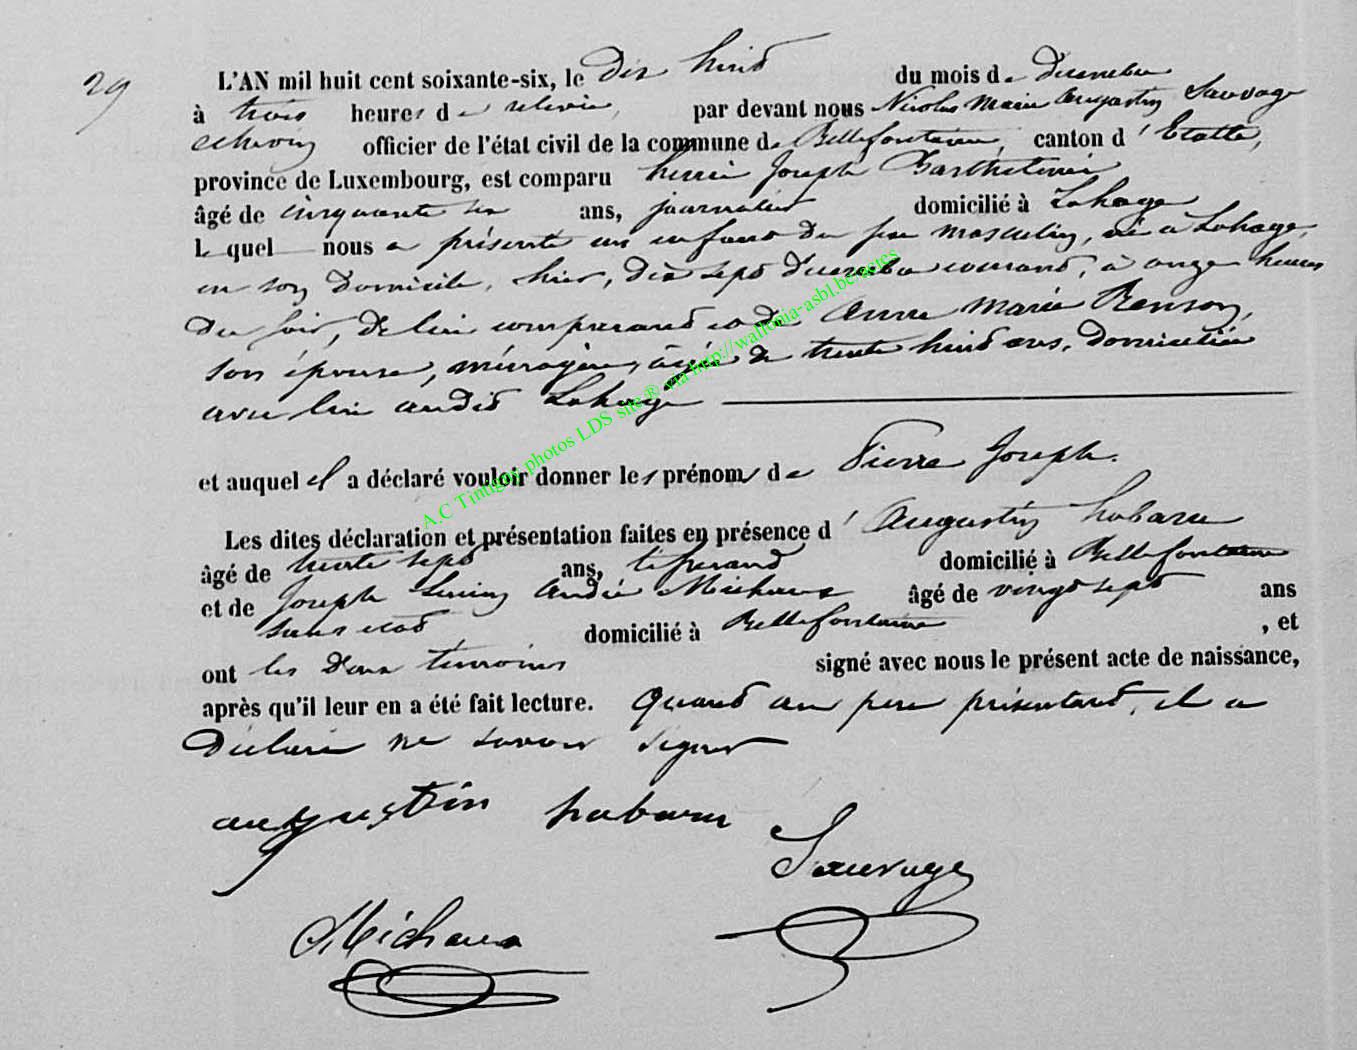 29
L'AN mil huit cent soixante-six, le Dix huit du mois de Décembre
à trois heures de relevée, par devant nous Nicolas Marie Augustin Sauvage
échevin officier de l'état civil de la commune de Bellefontaine, canton d'Etalle,
province de Luxembourg, est comparu Henri Joseph Barthelemi
âgé de cinquante six ans, journalier domicilié à Lahage
lequel nous a présenté un enfant du sexe masculin, né à Lahage,
en son domicile, hier, dix sept Décembre courant, à onze heures
du soir, de lui comparant et de Anne Marie Renson,
son épouse, ménagère, âgée de trente huit ans, domiciliée
avec lui audit Lahage
et auquel il a déclaré vouloir donner les prénoms de Pierre Joseph.
Les dites déclaration et présentation faites en présence d'Augustin habaru
âgé de trente sept ans, tisserand domicilié à Bellefontaine
et de Joseph André Michaux âgé de vingt sept ans
sans état domicilié à Bellefontaine, et
ont les deux témoins signé avec nous le présent acte de naissance,
après qu'il leur en a été fait lecture. Quant au père présentant, il a
Déclaré ne savoir signer
augustin habaru
Sauvage
Michaux
A.C Tintigny photos LDS site ® via http://wallonia-asbl.be/actes